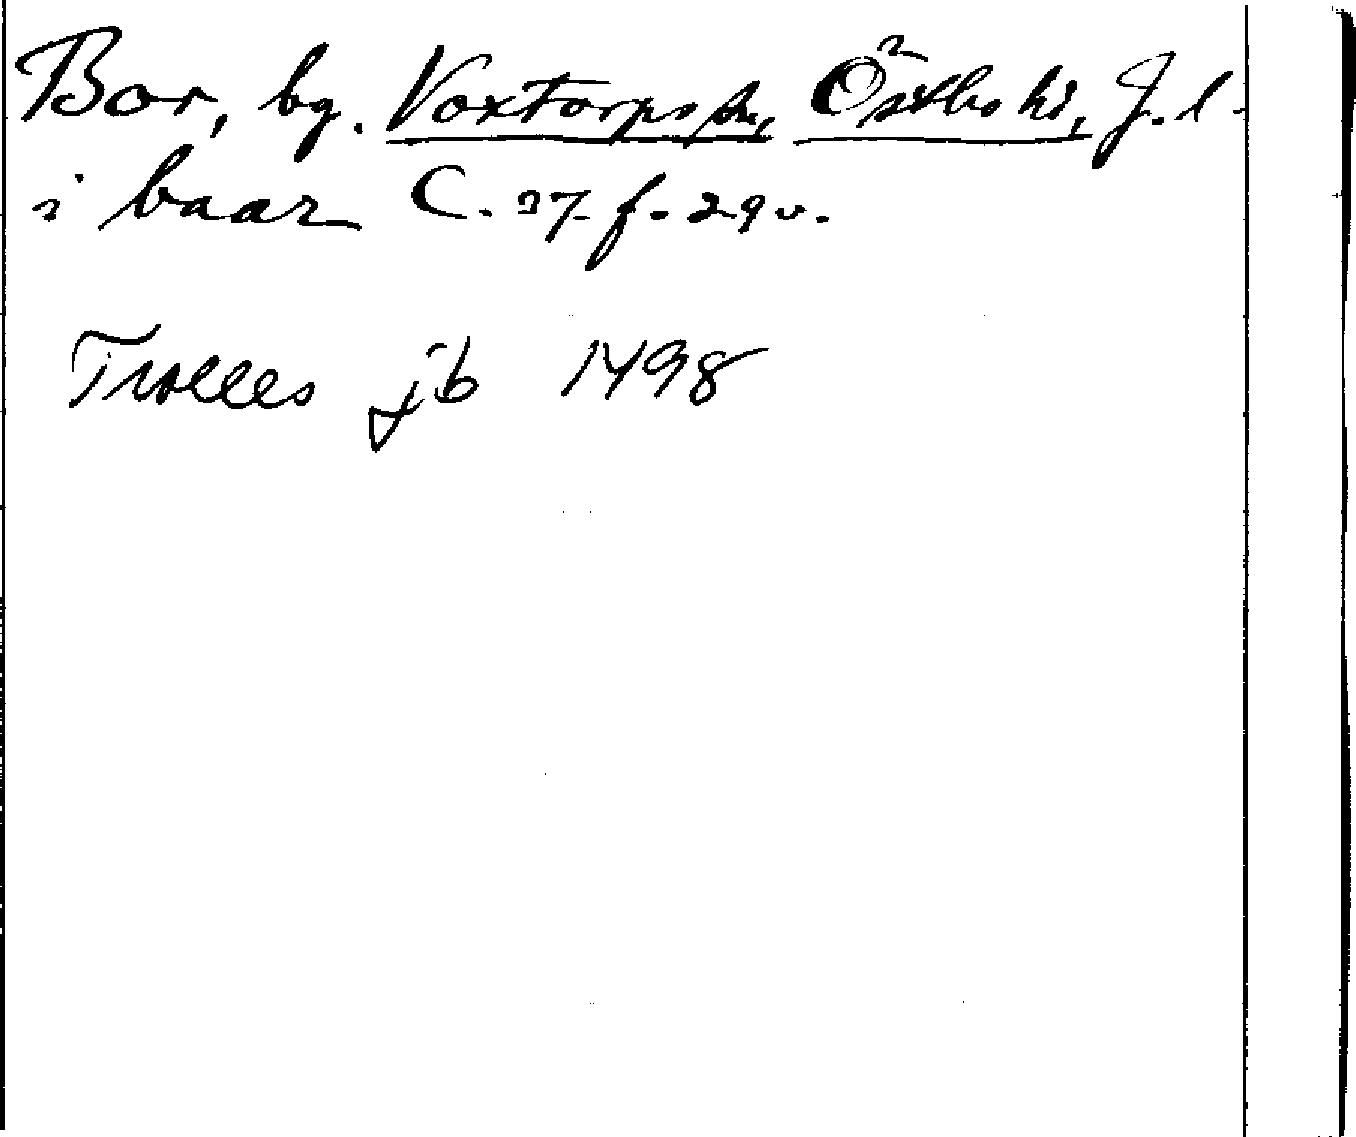 Bor, by. Voxtorps sn, Östbo hd, J. l.
i baar C. 37. f. 29 v.
Trolles jb 1498